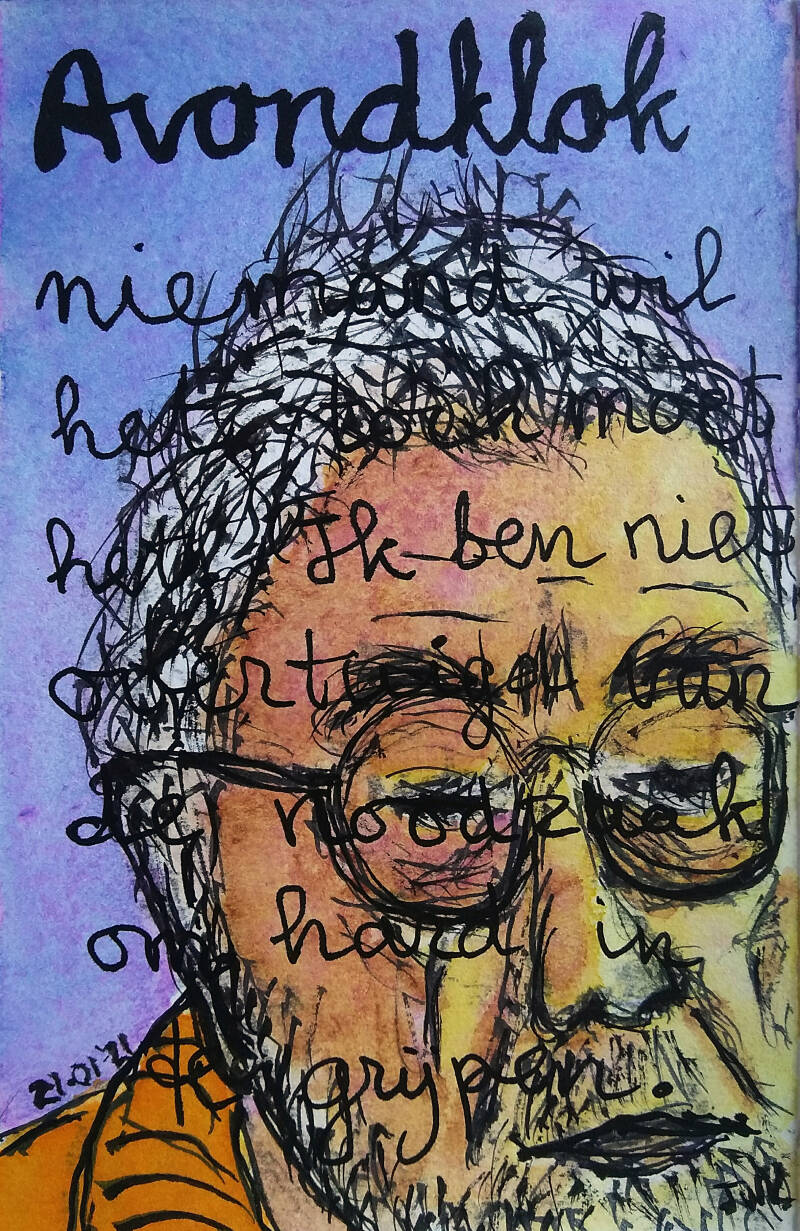 Avondklok
niemand wil
het toch moet
het. Ik ben niet
overtuigd van
de noodzaak
om hard in
te grijpen.
21·01·21